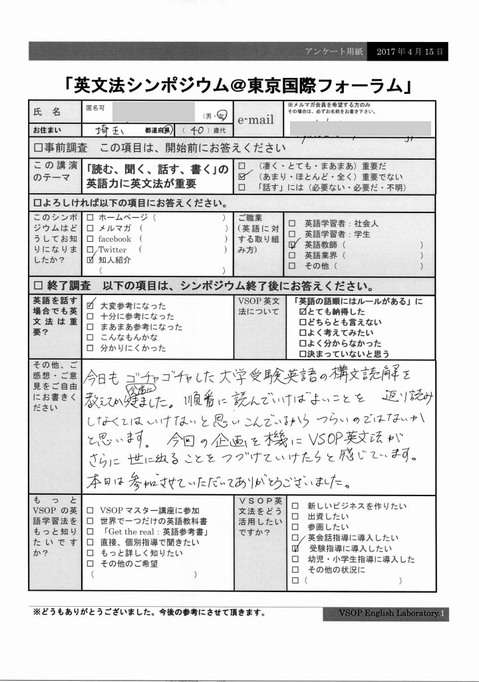 アンケート用紙 2017年4月15日
「英文法シンポジウム＠東京国際フォーラム」
氏 名 匿名可 (男・女) e-mail ※メルマガ会員を希望する方のみ
その場合は、必ずお名前をお書き下さい。
お住まい 埼玉 都道府県 (40)歳代
□事前調査 この項目は、開始前にお答えください
この講演のテーマ
「読む、聞く、話す、書く」の英語力に英文法が重要
□ (凄く・とても・まあまあ) 重要だ
☑ (あまり・ほとんど・全く) 重要でない
□ 「話す」には (必要ない・必要だ・不明)
□よろしければ以下の項目にお答えください。
このシンポジウムはどうしてお知りになりましたか？
□ ホームページ ( )
□ メルマガ ( )
□ facebook ( )
□ Twitter ( )
☑ 知人紹介
( )
ご職業
(英語に対する取り組み方)
□ 英語学習者：社会人
□ 英語学習者：学生
☑ 英語教師 ( )
□ 英語業界 ( )
□ その他 ( )
□ 終了調査 以下の項目は、シンポジウム終了後にお答えください。
英語を話す場合でも英文法は重要？
☑ 大変参考になった
□ 十分に参考になった
□ まあまあ参考になった
□ こんなもんかな
□ 分かりにくかった
VSOP英文法について
「英語の語順にはルールがある」に
☑とても納得した
□どちらとも言えない
□よく考えてみたい
□よく分からなかった
□決まっていないと思う
その他、ご感想・ご意見をご自由にお書きください
今日も ゴチャゴチャした大学受験英語の構文読解を
教えてから
来ました。順番に読んでいけばよいことを 返り読み
しなくてはいけないと思いこんでいるから つらいのではないか
と思います。今回の企画を機にVSOP英文法が
さらに 世に出ることをつづけていけたらと感じています。
本日は参加させていただいてありがとうございました。
もっとVSOPの英語学習法をもっと知りたいですか？
□ VSOPマスター講座に参加
□ 世界で一つだけの英語教科書
□ 「Get the real：英語参考書」
□ 直接、個別指導で聞きたい
□ もっと詳しく知りたい
□ その他のご希望
( )
VSOP英文法をどう活用したいですか？
□ 新しいビジネスを作りたい
□ 出資したい
□ 参画したい
□ 英会話指導に導入したい
☑ 受験指導に導入したい
□ 幼児・小学生指導に導入した
□ その他の状況に
□ ( )
※どうもありがとうございました。今後の参考にさせて頂きます。
VSOP English Laboratory.1